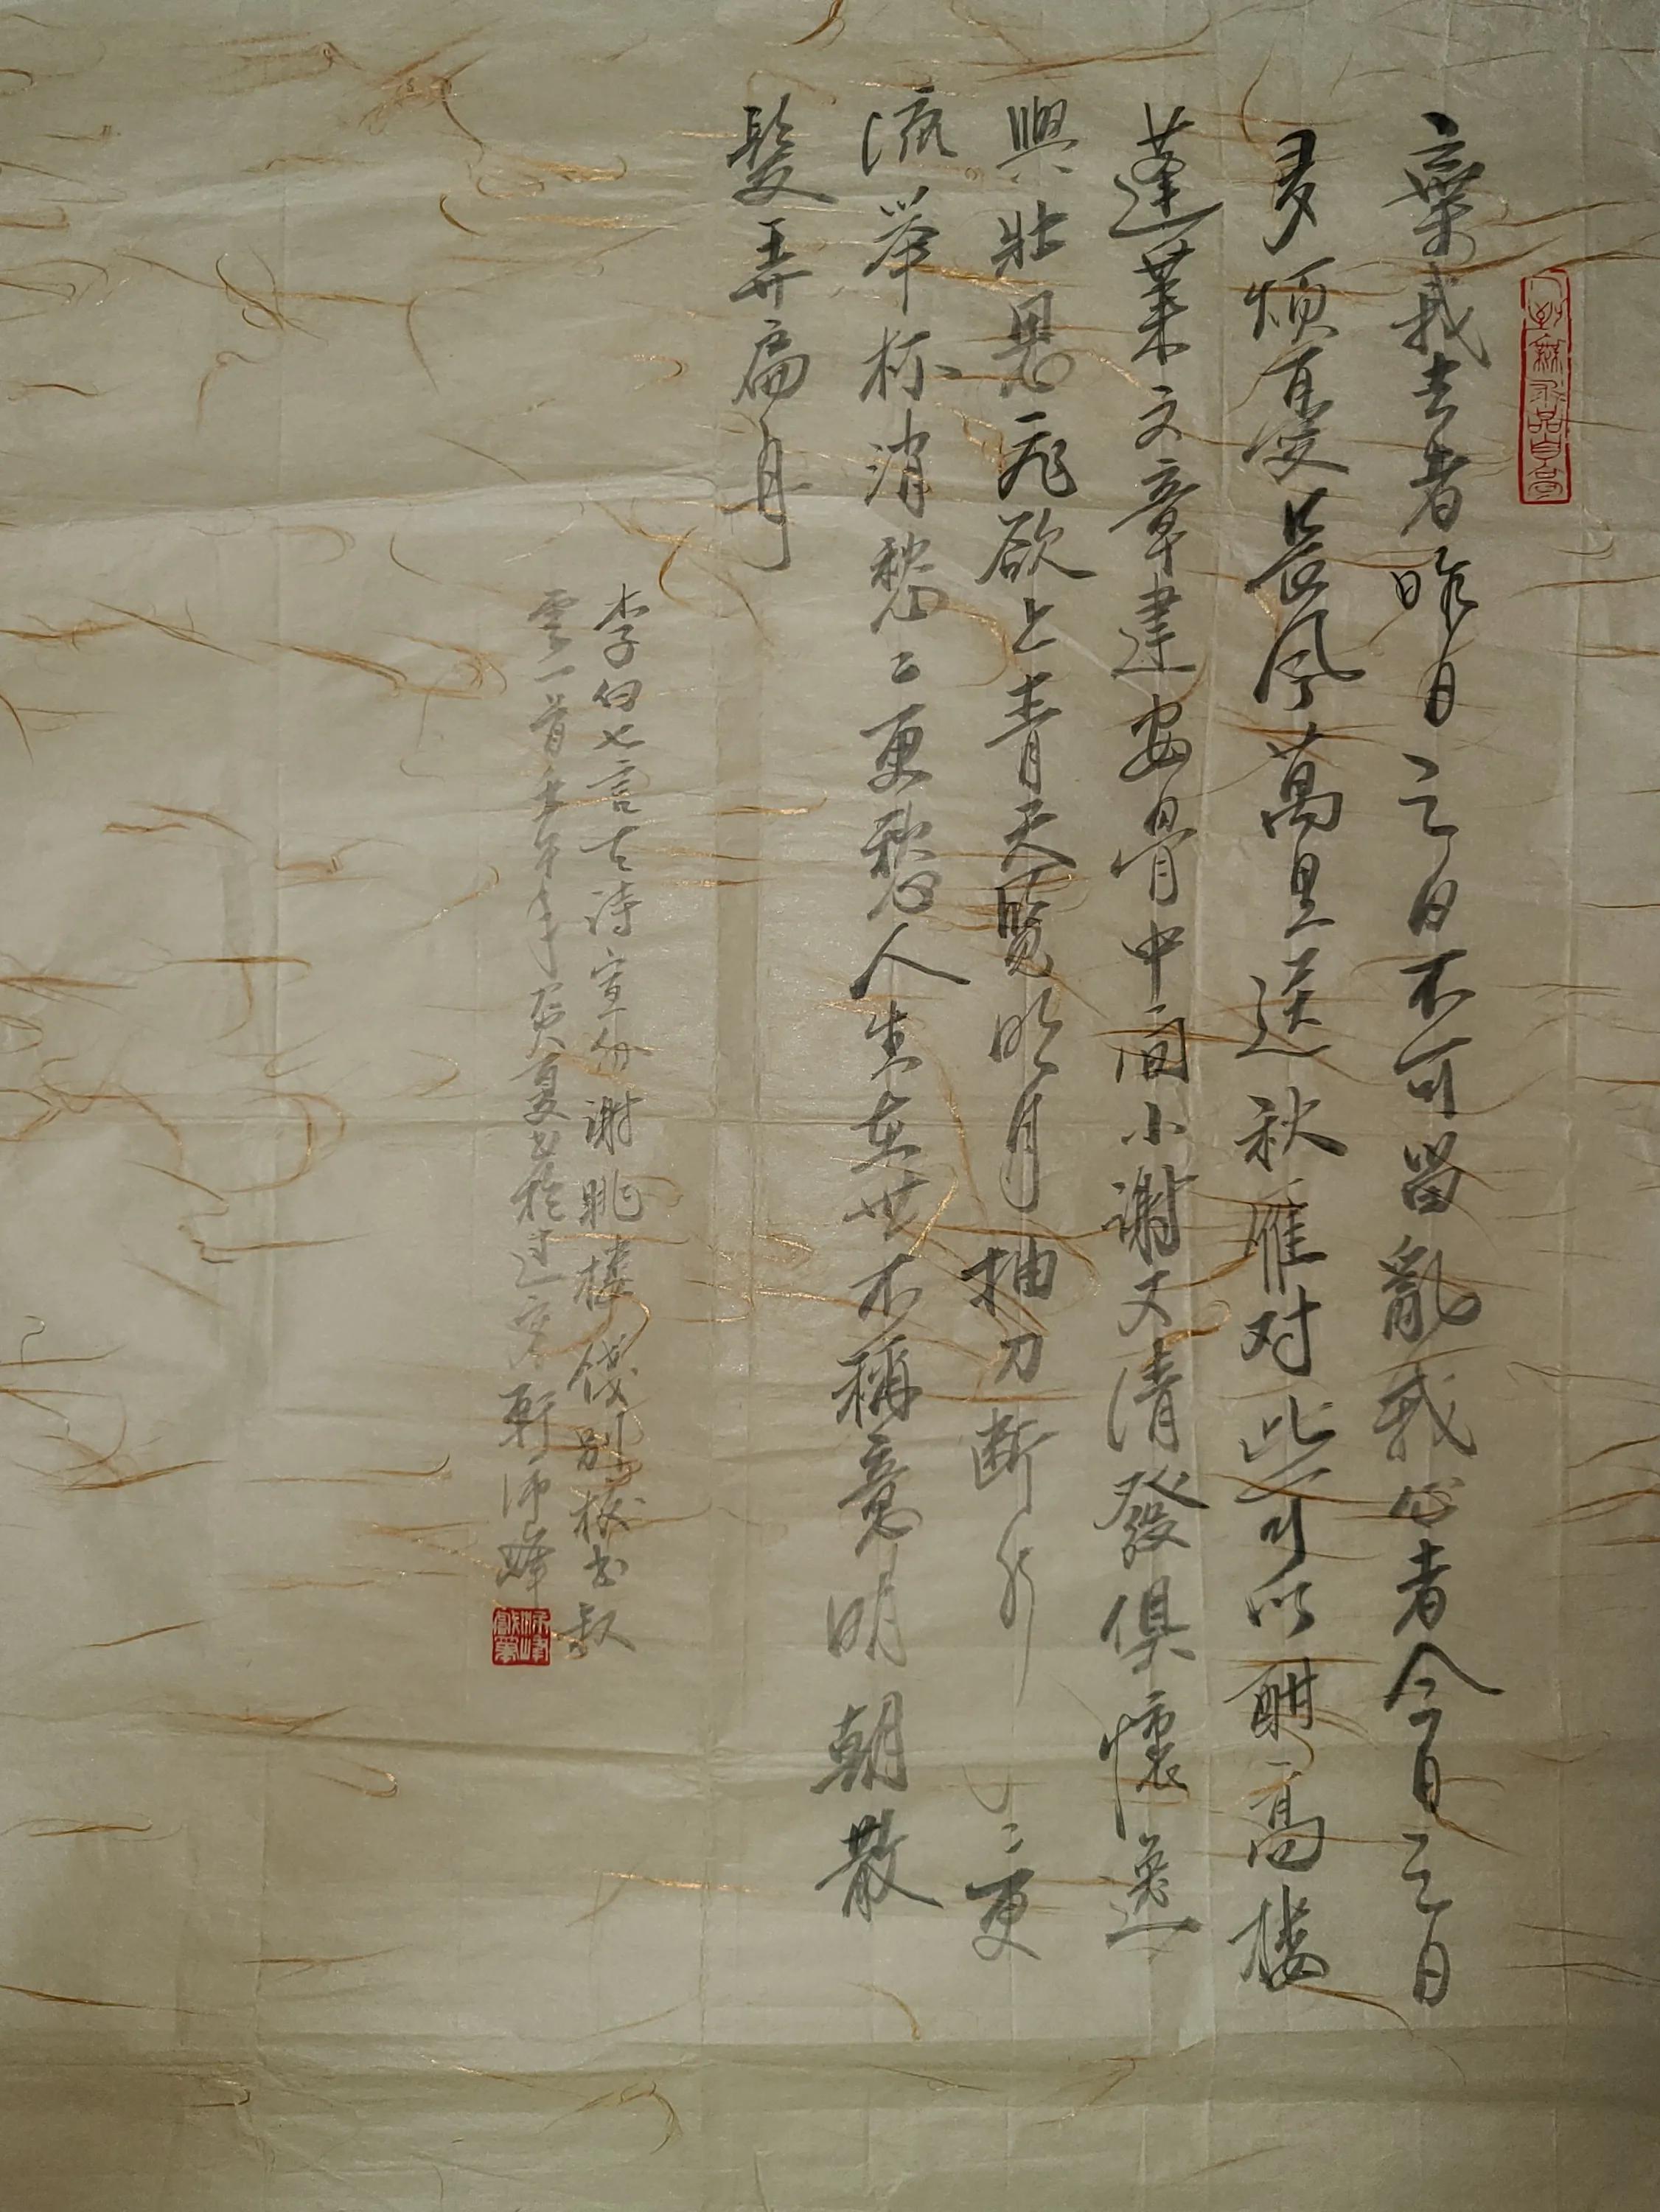 棄我去者昨日之日不可留亂我心者今日之日
多煩憂長风萬里送秋雁对此可以酣高樓
蓬萊文章建安骨中间小謝又清發俱懷逸
興壯思飛欲上青天覽明月抽刀断水々更
流举杯消愁々更愁人生在世不稱意明朝散
髮弄扁舟
李白七言古詩宣州謝朓樓餞別校书叔
雲一首 年 夏书於 軒 峰